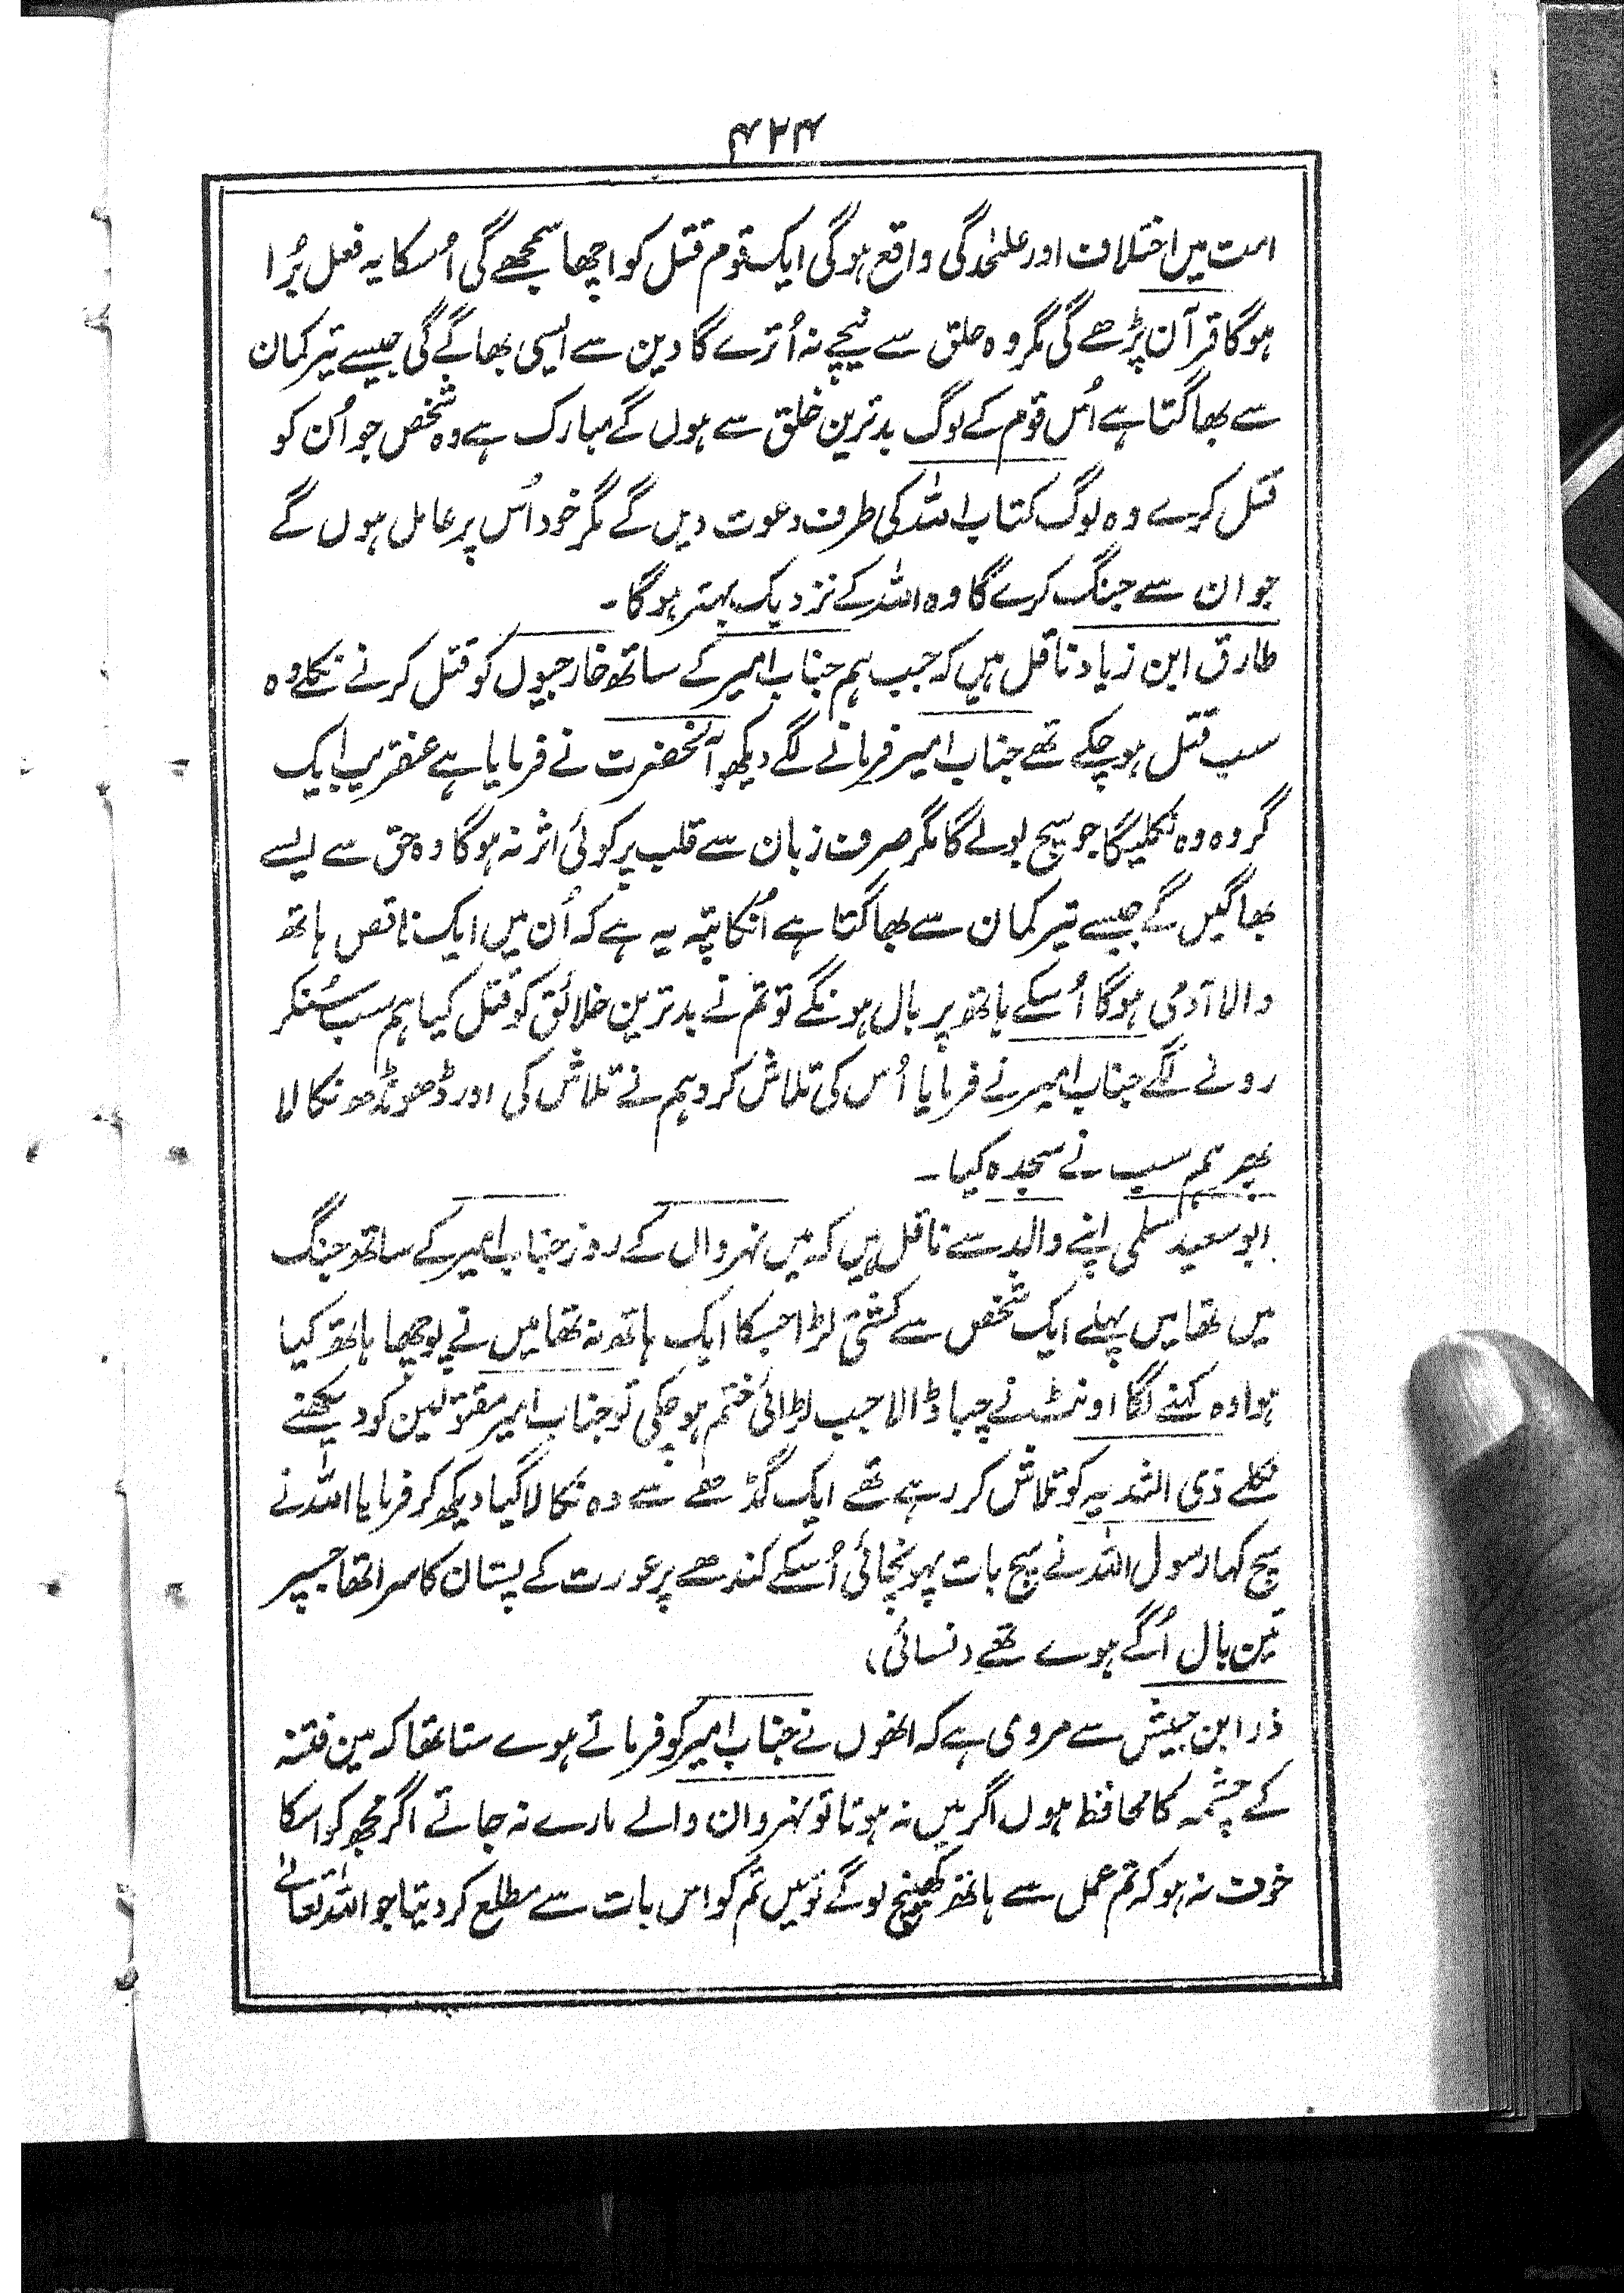 ۴۲۴
امت میں اختلاف اور علٰحدگی واقع ہوگی ایک قوم قتل کو اچھا سمجھے گی اُسکا یہ فعل بُرا
ہوگا قرآن پڑھے گی مگر وہ حلق سے نیچے نہ اُترے گا دین سے ایسی بھاگے گی جیسے تیر کمان
سے بھاگتا ہے اُس قوم کے لوگ بدترین خلق سے ہوں گے مبارک ہے وہ شخص جو اُن کو
قتل کرے وہ لوگ کتاب اللہ کی طرف دعوت دیں گے مگر خود اُس پر عامل ہوں گے
جو ان سے جنگ کرے گا وہ اللہ کے نزدیک بہتر ہوگا۔
طارق ابن زیاد ناقل ہیں کہ جب ہم جناب امیر کے ساتھ خارجیوں کو قتل کرنے نکلے وہ
سب قتل ہوچکے تھے جناب امیر فرمانے لگے دیکھو آنحضرت نے فرمایا ہے عنقریب ایک
گروہ وہ نکلیگا جو سچ بولے گا مگر صرف زبان سے قلب پر کوئی اثر نہ ہوگا وہ حق سے ایسے
بھاگیں گے جیسے تیر کمان سے بھاگتا ہے اُنکا پتہ یہ ہے کہ اُن میں ایک ناقص ہاتھ
والا آدمی ہوگا اُسکے ہاتھ پر بال ہونگے تو تم نے بدترین خلائق کو قتل کیا ہم سب سُنکر
رونے لگے جناب امیر نے فرمایا اُس کی تلاش کرو ہم نے تلاش کی اور ڈھونڈھ نکالا
پھر ہم سب نے سجدہ کیا۔
ابو سعید سلمی اپنے والد سے ناقل ہیں کہ میں نہرواں کے روز جناب امیر کے ساتھ جنگ
میں تھا میں پہلے ایک شخص سے کشتی لڑا جسکا ایک ہاتھ نہ تھا میں نے پوچھا ہاتھ کیا
ہوا وہ کہنے لگا اونٹ نے چبا ڈالا جب لڑائی ختم ہوچکی تو جناب امیر مقتولین کو دیکھنے
نکلے ذی الثدیہ کو تلاش کر رہے تھے ایک گڈھے سے وہ نکالا گیا دیکھ کر فرمایا اللہ نے
سچ کہا رسول اللہ نے سچ بات پہونچائی اُسکے کندھے پر عورت کے پستان کا سرا تھا جسپر
تین بال اُگے ہوے تھے (نسائی)
ذر ابن جیش سے مروی ہے کہ انھوں نے جناب امیر کو فرماتے ہوے سنا تھا کہ مین فتنہ
کے چشمہ کا محافظ ہوں اگر میں نہ ہوتا تو نہروان والے مارے نہ جاتے اگر مجھ کو اسکا
خوف نہ ہو کہ تم عمل سے ہاتھ کھینچ لو گے تو میں تم کو اس بات سے مطلع کر دیتا جو اللہ تعالےٰ